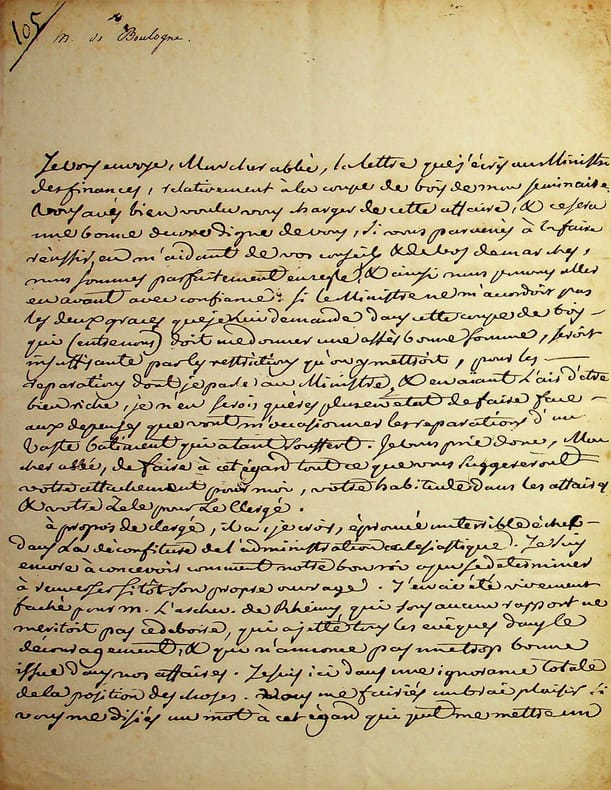 105
M. de Boulogne.
Je vous envoye, Mon cher abbé, la lettre que j'écris au Ministre
des finances, relativement à la coupe de bois de mon séminaire.
Vous avés bien voulu vous charger de cette affaire, & ce sera
une bonne œuvre digne de vous, si vous parvenés à la faire
réussir, en m'aidant de vos conseils & de vos demarches,
nous sommes parfaitement en regle, & ainsi nous pouvons aller
en avant avec confiance. Si le Ministre ne m'accordoit pas
les deux graces que je lui demande dans cette coupe de bois -
qui (entre nous) doit me donner une assés bonne somme, seroit
insuffisante par les restrictions qu'on y mettroit, pour les —
reparations dont je parle au Ministre, & en aiant l'air d'être
bien riche, je n'en serois guères plus en état de faire face -
aux depenses que vont m'occasionner les reparations d'un
vaste bâtiment qui a tant souffert. Je vous prie donc, Mon
cher abbé, de faire à cet égard tout ce que vous suggereront
votre attachement pour moi, votre habitude dans les affaires
& votre zele pour le Clergé.
à propos de clergé, il a, je crois, éprouvé un terrible échec -
dans la déconfiture de l'administration eclesiastique. Je suis
encore à concevoir comment notre bon roi a pu se determiner
à renverser sitôt son propre ouvrage. J'en ai été vivement
faché pour M. L'archev. de Rheims, qui sous aucun rapport ne
meritoit pas ce deboire, qui a jetté tous les evêques dans le
decouragement, & qui n'annonce pas une trop bonne
issue dans nos affaires. Je suis ici dans une ignorance totale
de la position des choses. Vous me fairiés un vrai plaisir si
vous me disiés un mot à cet égard qui put me mettre un